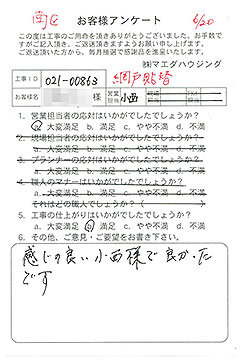 南区 お客様アンケート 6/20
この度は工事のご用命を頂きありがとうございました。お手数で
すがご記入頂き、ご返送頂きますようお願い申し上げます。
ご返送頂いた方から、毎月抽選で感謝品を進呈いたします。
㈱マエダハウジング
工事ID 021-00863 網戸貼替
お客様名 様 営業担当 小西
1. 営業担当者の応対はいかがでしたでしょうか？
a. 大変満足 b. 満足 c. やや不満 d. 不満
2. 現場担当者の応対はいかがでしたでしょうか？
a. 大変満足 b. 満足 c. やや不満 d. 不満
3. プランナーの応対はいかがでしたでしょうか？
a. 大変満足 b. 満足 c. やや不満 d. 不満
4. 職人のマナーはいかがでしたでしょうか？
a. 大変満足 b. 満足 c. やや不満 d. 不満
それはどの職人でしょうか？（
5. 工事の仕上がりはいかがでしたでしょうか？
a. 大変満足 b. 満足 c. やや不満 d. 不満
6. その他、ご意見・ご要望をお書き下さい。
感じの良い小西様で良かった
です